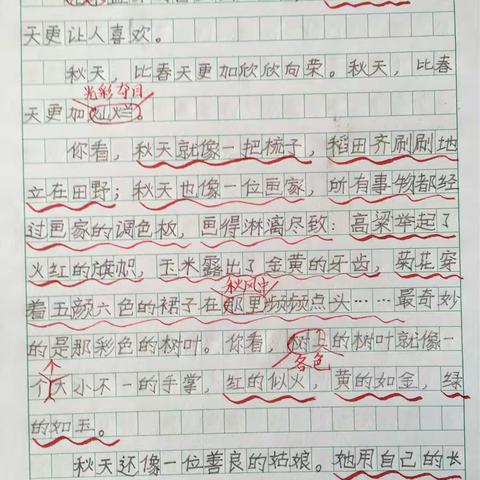 天更让人喜欢。
秋天，比春天更加欣欣向荣。秋天，比春
光彩夺目
天更加灿烂。
你看，秋天就像一把梳子，稻田齐刷刷地
立在田野；秋天也像一位画家，所有事物都经
过画家的调色板，画得淋漓尽致：高梁举起了
火红的旗帜，玉米露出了金黄的牙齿，菊花穿
秋风中
着五颜六色的裙子在那里频频点头……最奇妙
的是那彩色的树叶。你看，树上的树叶就像一
个 各色
个大小不一的手掌，红的似火，黄的如金，绿
的如玉。
秋天还像一位善良的姑娘。她用自己的长